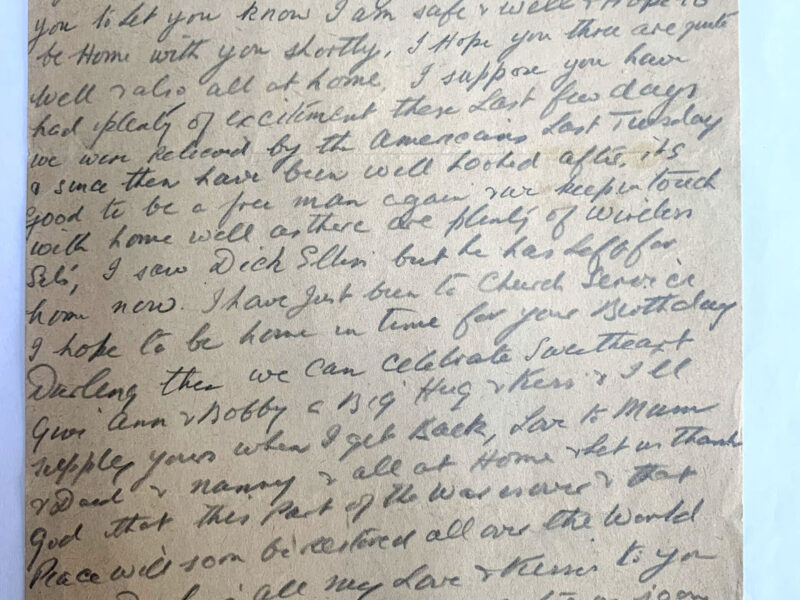 you to let you know I am safe & well & Hope to
be Home with you shortly, I Hope you three are quite
well & also all at home, I suppose you have
had plenty of excitiment these Last few days
we were relieved by the Americains Last Tuesday
& since then have been well looked after, its
good to be a free man again & we keep in touch
with home well as there are plenty of wireless
Sets, I saw Dick but he has Left for
home now. I have just been to Church Service
I hope to be home in time for your Birthday
Darling then we can celebrate Sweetheart
Give Ann & Bobby a Big Hug & Kiss & I'll
supply yours when I get Back, Love to Mum
& Dad & nanny & all at Home & Let us thank
God that this Part of the War is over & that
Peace will soon be restored all over the World
all my Love & Kisses to you